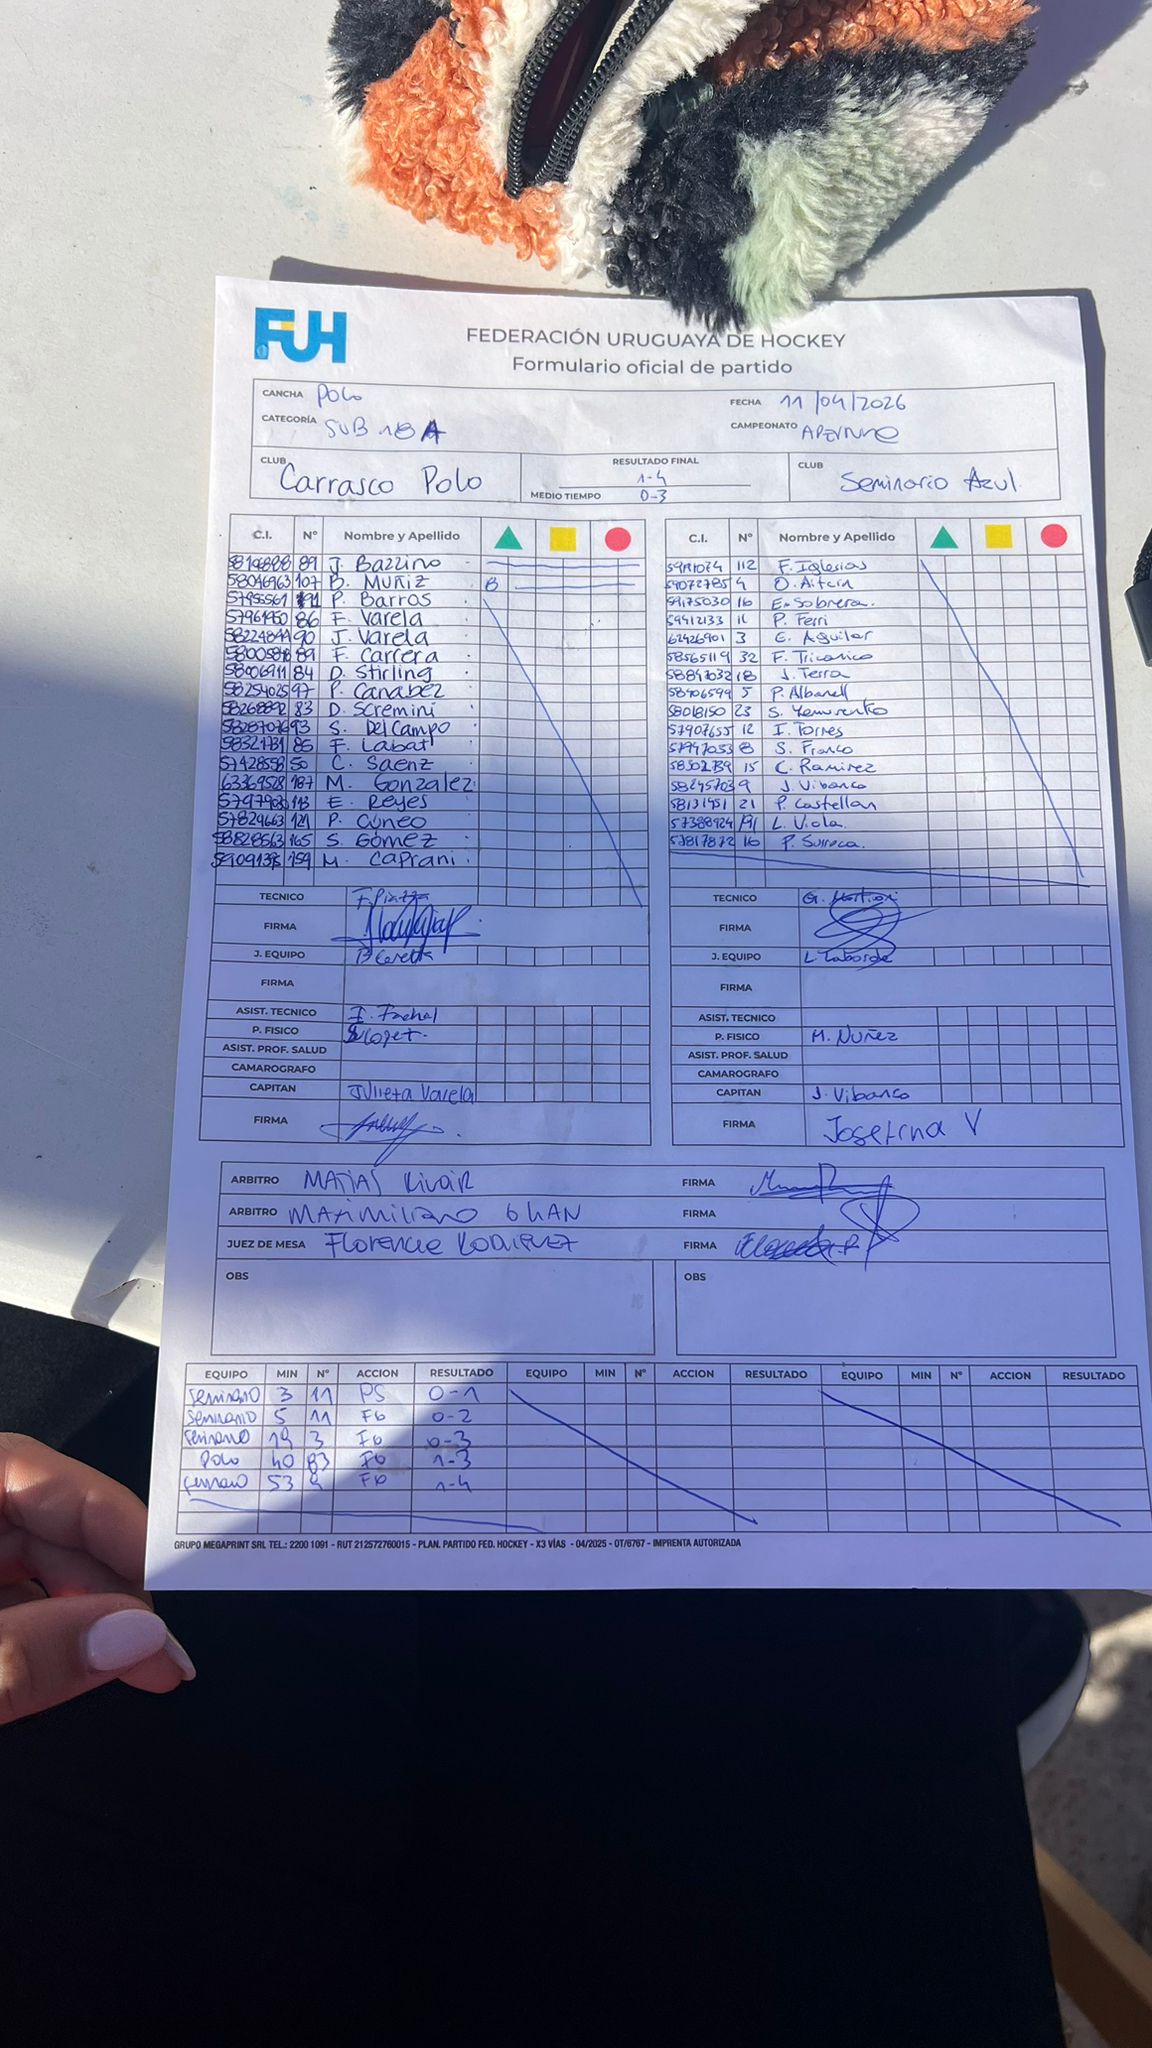 FUH
FEDERACIÓN URUGUAYA DE HOCKEY
Formulario oficial de partido
CANCHA Polo
FECHA 11/04/2026
CATEGORÍA SUB 18 A
CAMPEONATO
CLUB Carrasco Polo
RESULTADO FINAL 1-4
MEDIO TIEMPO 0-3
CLUB Seminario Azul
C.I. Nº Nombre y Apellido
89 J. Bazzino
58046963 107 B. Muñiz 8
P. Barros
86 F. Varela
90 J. Varela
89 F. Carrera
58006911 84 D. Stirling
58254025 97 P. Canabez
83 D. Scremini
93 S. Del Campo
85 F. Labat
57428558 50 C. Saenz
63369528 187 M. Gonzalez
113 E. Reyes
57829663 121 P. Cúneo
58828563 165 S. Gómez
159 M. Caprani
TECNICO F. Piazza
FIRMA
J. EQUIPO
FIRMA
ASIST. TECNICO
P. FISICO
ASIST. PROF. SALUD
CAMAROGRAFO
CAPITAN Julieta Varela
FIRMA
C.I. Nº Nombre y Apellido
112 F. Iglesias
59072785 4 O.
59175030 16 E. Sobrera.
59412133 11 P. Ferri
62426901 3 E. Aguilar
58565119 32 F.
58847032 18 J. Terra
58906599 5 P. Albanell
58018150 23 S.
57907655 12 I. Torres
8 S. Franco
15 C. Ramirez
58245703 9 J. Vibanco
58131951 21 P. Castellan
57388924 L. Viola.
57817872 16 P.
TECNICO G.
FIRMA
J. EQUIPO L. Laborde
FIRMA
ASIST. TECNICO
P. FISICO M. Nuñez
ASIST. PROF. SALUD
CAMAROGRAFO
CAPITAN J. Vibanco
FIRMA Josefina V
ARBITRO MATIAS
FIRMA
ARBITRO MAXIMILIANO
FIRMA
JUEZ DE MESA FLORENCIA RODRIGUEZ
FIRMA
OBS
OBS
EQUIPO MIN Nº ACCION RESULTADO EQUIPO MIN Nº ACCION RESULTADO EQUIPO MIN Nº ACCION RESULTADO
Seminario 3 11 PS 0-1
Seminario 5 11 FG 0-2
Seminario 19 3 FG 0-3
Polo 40 83 FG 1-3
53 FG 1-4
GRUPO MEGAPRINT SRL TEL.: 2200 1091 - RUT 212572760015 - PLAN. PARTIDO FED. HOCKEY - X3 VÍAS - 04/2025 - OT/6767 - IMPRENTA AUTORIZADA